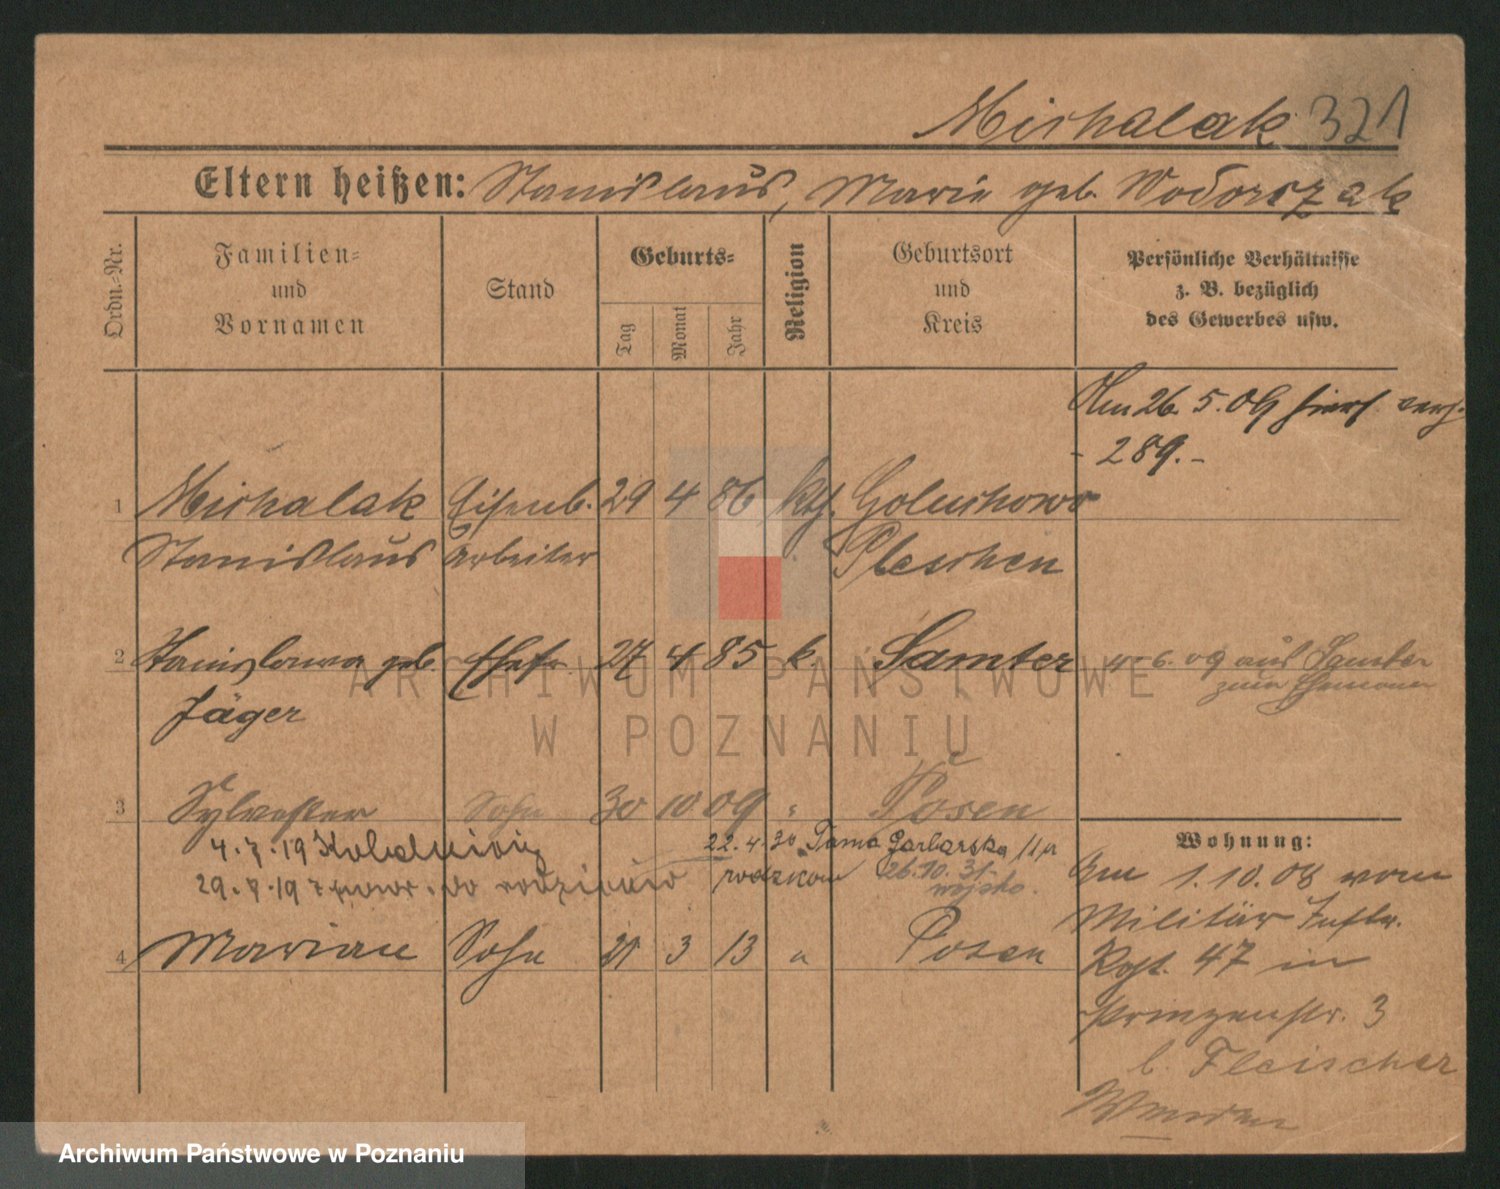 Michalak 321
Eltern heißen: Stanislaus, Marie geb. Wodorszak
Ordn.-Nr.
Familien-
und
Vornamen
Stand
Geburts-
Tag
Monat
Jahr
Religion
Geburtsort
und
Kreis
Persönliche Verhältnisse
z. B. bezüglich
des Gewerbes usw.
Am 26. 5. 09 hierh. verh.
- 289. -
1 Michalak Eisenb. 29 4 86 kth. Goluchowo
Stanislaus Arbeiter Pleschen
2 Stanislawa geb. Ehefr. 27 4 85 k. Samter 4. 6. 09 aus Samter
Jäger zum Ehemann
3 Sylvester Sohn 30 10 09 " Posen
4. 7. 19 22.4.30 Tama Garbarska
29. 7. 19 do rodziców rodzicow 26.10.31
wojsko.
4 Marian Sohn 21 3 13 " Posen
Wohnung:
Am 1. 10. 08 vom
Militär Inftr.
Rgt. 47 in
Prinzenstr. 3
b. Fleischer
ARCHIWUM PAŃSTWOWE
W POZNANIU
Archiwum Państwowe w Poznaniu